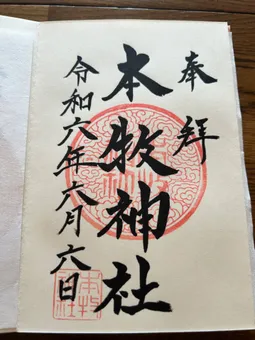 奉拝
本牧神社
令和六年六月六日